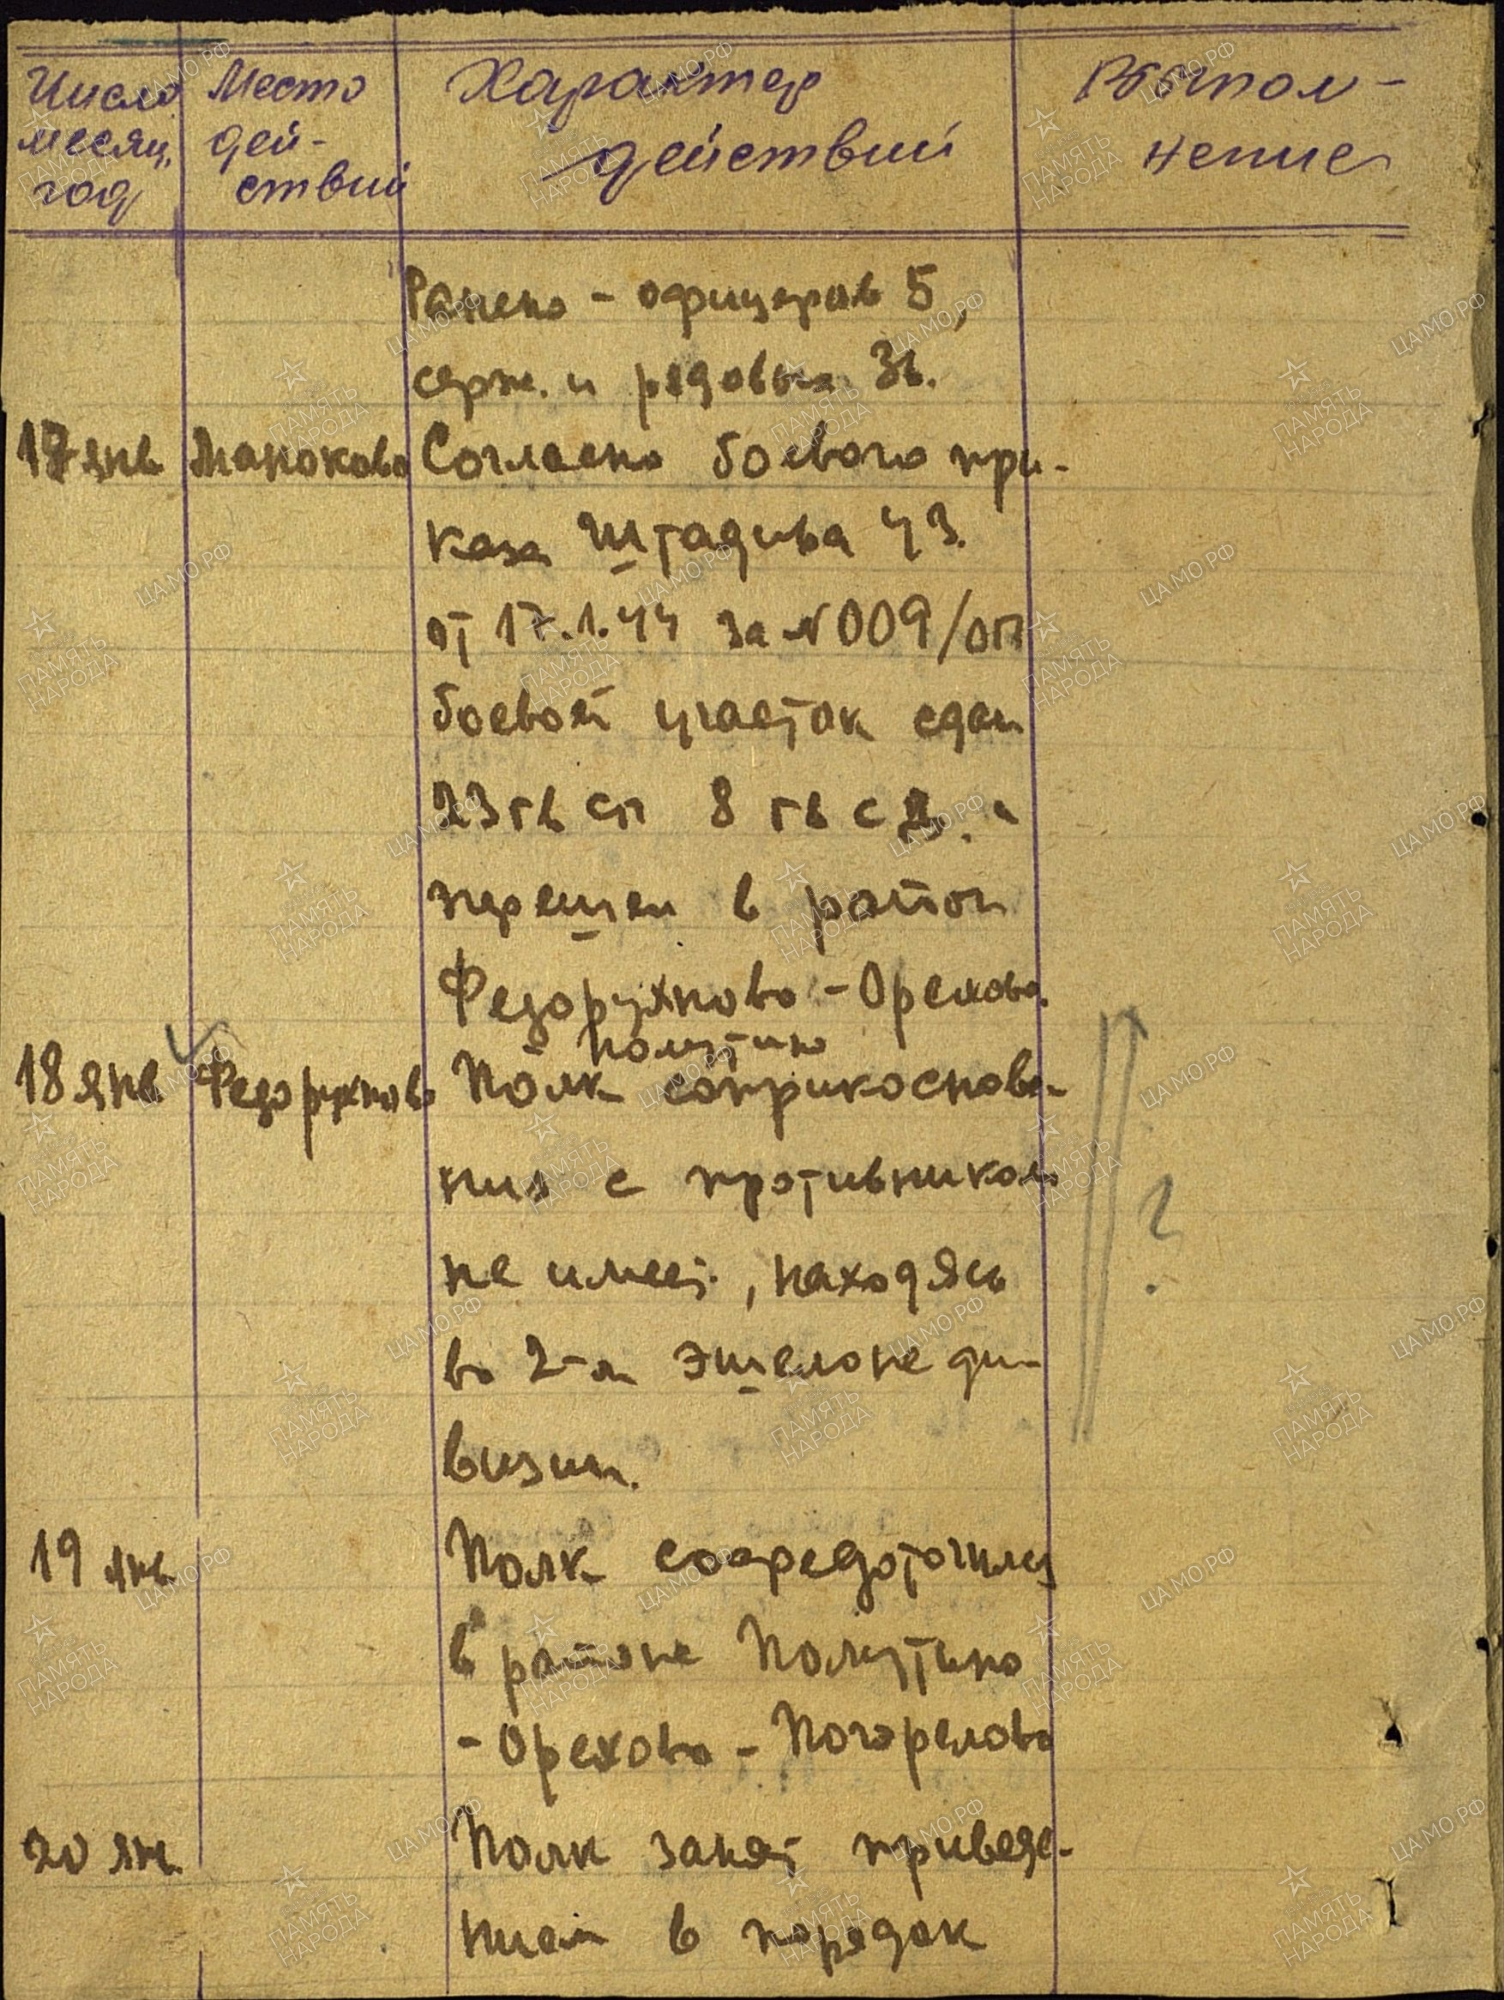 Число месяц, год
Место действий
Характер действий
Выполнение
Ранено - офицеров 5,
серж. и рядовых 36.
17 янв Маноково Согласно боевого при-
каза Штадива 43.
от 17.1.44 за № 009/оп
боевой участок сдан
23 гв сп 8 гв с д. и
перешел в район
Федорухново - Орехово.
Полутино
18 янв Федорухново Полк соприкоснове-
ния с противником
не имеет, находясь
во 2-м эшелоне ди-
визии.
?
19 янв. Полк сосредоточился
в районе Полутино
- Орехово - Погорелово
20 янв. Полк занят приведе-
нием в порядок